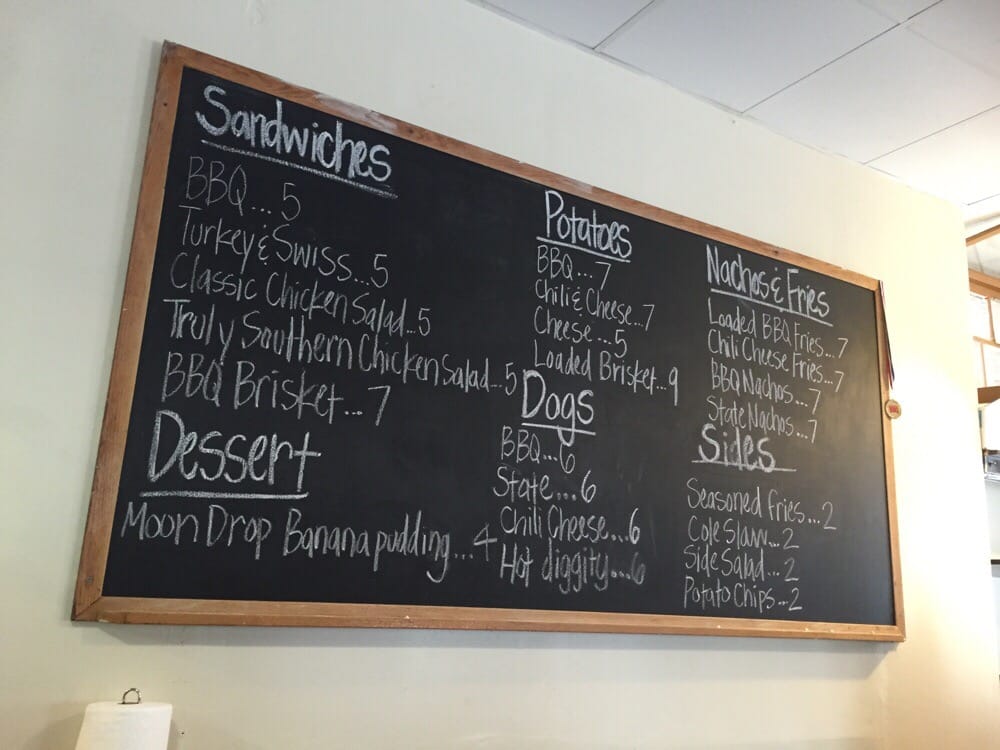 Sandwiches
BBQ... 5
Turkey & Swiss...5
Classic Chicken Salad...5
Truly Southern Chicken Salad...5
BBQ Brisket...7
Dessert
Moon Drop Banana pudding...4
Potatoes
BBQ...7
Chili & Cheese...7
Cheese...5
Loaded Brisket...9
Dogs
BBQ...6
State...6
Chili Cheese...6
Hot diggity...6
Nachos & Fries
Loaded BBQ Fries...7
Chili Cheese Fries...7
BBQ Nachos...7
State Nachos...7
Sides
Seasoned fries...2
Cole Slaw...2
Side Salad...2
Potato Chips...2